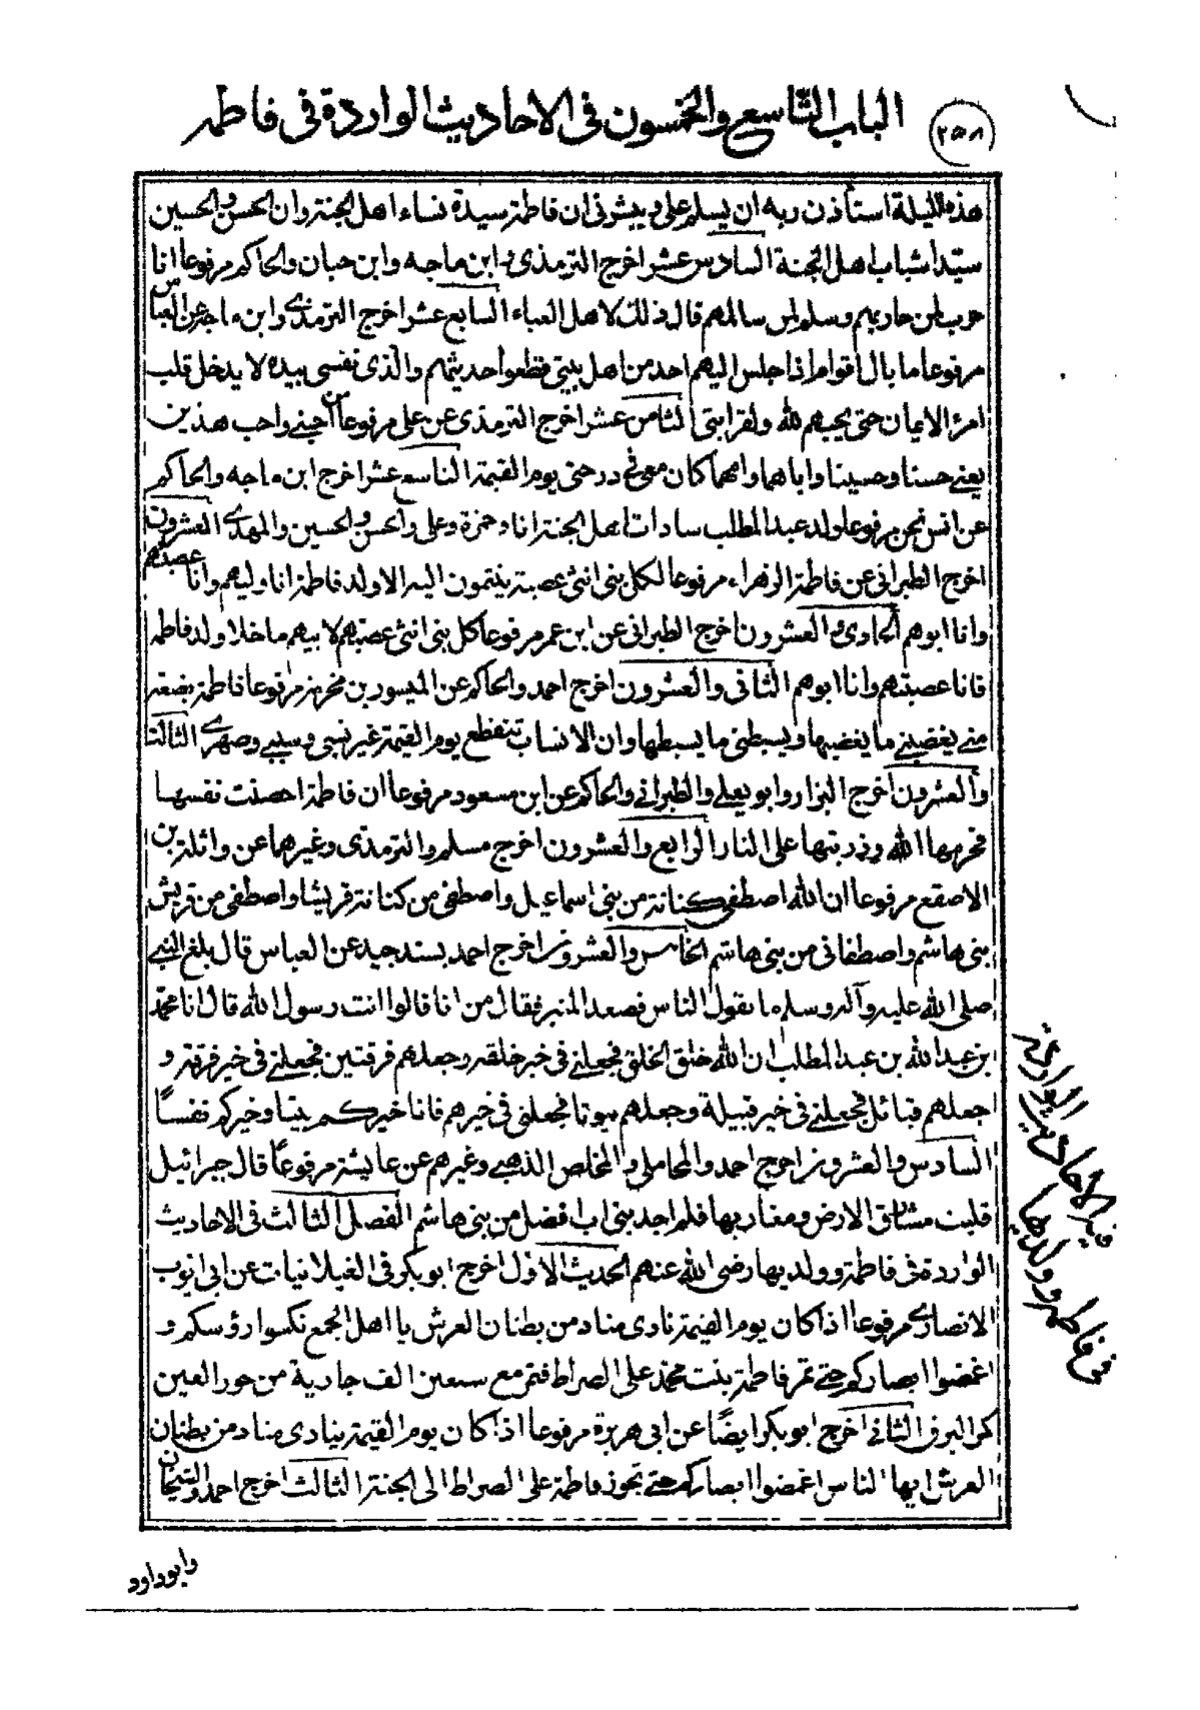 الباب التاسع والخمسون فى الاحاديث الواردة فى فاطمة
٢٥٨
هذه الليلة استأذن ربه ان يسلم على ويبشرنى ان فاطمة سيدة نساء اهل الجنة وان الحسن والحسين
سيدا شباب اهل الجنة السادس عشر اخرج الترمذى وابن ماجه وابن حبان والحاكم مرفوعا انا
حرب لمن حاربهم وسلم لمن سالمهم قال ذلك لاهل العباء السابع عشر اخرج الترمذى وابن ماجة عن العباس
مرفوعا ما بال اقوام اذا جلس اليهم احد من اهل بيتى قطعوا حديثهم والذى نفسى بيده لا يدخل قلب
امرء الايمان حتى يحبهم لله ولقرابتى الثامن عشر اخرج الترمذى عن على مرفوعا من احبنى واحب هذين
يعنى حسنا وحسينا واباهما وامهما كان معى فى درجتى يوم القيمة التاسع عشر اخرج ابن ماجه والحاكم
عن انس نحن مرفوعا ولد عبد المطلب سادات اهل الجنة انا وحمزة وعلى والحسن والحسين والمهدى العشرون
اخرج الطبرانى عن فاطمة الزهراء مرفوعا لكل بنى انثى عصبة ينتمون اليه الا ولد فاطمة انا وليهم وانا عصبتهم
وانا ابوهم الحادى والعشرون اخرج الطبرانى عن ابن عمر مرفوعا كل بنى انثى عصبتهم لابيهم ما خلا ولد فاطمة
فانا عصبتهم وانا ابوهم الثانى والعشرون اخرج احمد والحاكم عن الميسور بن مخرمة مرفوعا فاطمة بضعة
منى يغضبنى ما يغضبها ويبسطنى ما يبسطها وان الانساب تنقطع يوم القيمة غير نسبى وسببى وصهرى الثالث
والعشرون اخرج البزار وابو يعلى والطبرانى والحاكم عن ابن مسعود مرفوعا ان فاطمة احصنت نفسها
فحرمها الله وذريتها على النار الرابع والعشرون اخرج مسلم والترمذى وغيرهما عن واثلة بن
الاصقع مرفوعا ان الله اصطفى كنانة من بنى اسماعيل واصطفى من كنانة قريشا واصطفى من قريش
بنى هاشم واصطفانى من بنى هاشم الخامس والعشرون اخرج احمد بسند جيد عن العباس قال بلغ النبى
صلى الله عليه وآله وسلم ما يقول الناس فصعد المنبر فقال من انا قالوا انت رسول الله قال انا محمد
بن عبد الله بن عبد المطلب ان الله خلق الخلق فجعلنى فى خير خلقه وجعلهم فرقتين فجعلنى فى خير فرقة و
جعلهم قبائل فجعلنى فى خير قبيلة وجعلهم بيوتا فجعلنى فى خيرهم فانا خيركم بيتا وخيركم نفسًا
السادس والعشرون اخرج احمد والمحاملى والمخلص الذهبى وغيرهم عن عايشة مرفوعًا قال جبرائيل
قلبت مشارق الارض ومغاربها فلم اجد بنى اب افضل من بنى هاشم الفصل الثالث فى الاحاديث
الواردة فى فاطمة وولديها رضى الله عنهم الحديث الاول اخرج ابو بكر فى الغيلانيات عن ابى ايوب
الانصارى مرفوعا اذا كان يوم القيمة نادى مناد من بطنان العرش يا اهل الجمع نكسوا رؤسكم و
اغمضوا ابصاركم حتى تمر فاطمة بنت محمد على الصراط فتمر مع سبعين الف جارية من حور العين
كمر البرق الثانى اخرج ابو بكر ايضًا عن ابى هريرة مرفوعا اذا كان يوم القيمة ينادى مناد من بطنان
العرش ايها الناس اغمضوا ابصاركم حتى تجوز فاطمة على الصراط الى الجنة الثالث اخرج احمد والشيخان
فى الاحاديث الواردة
فى فاطمة وولديها
وابوداود